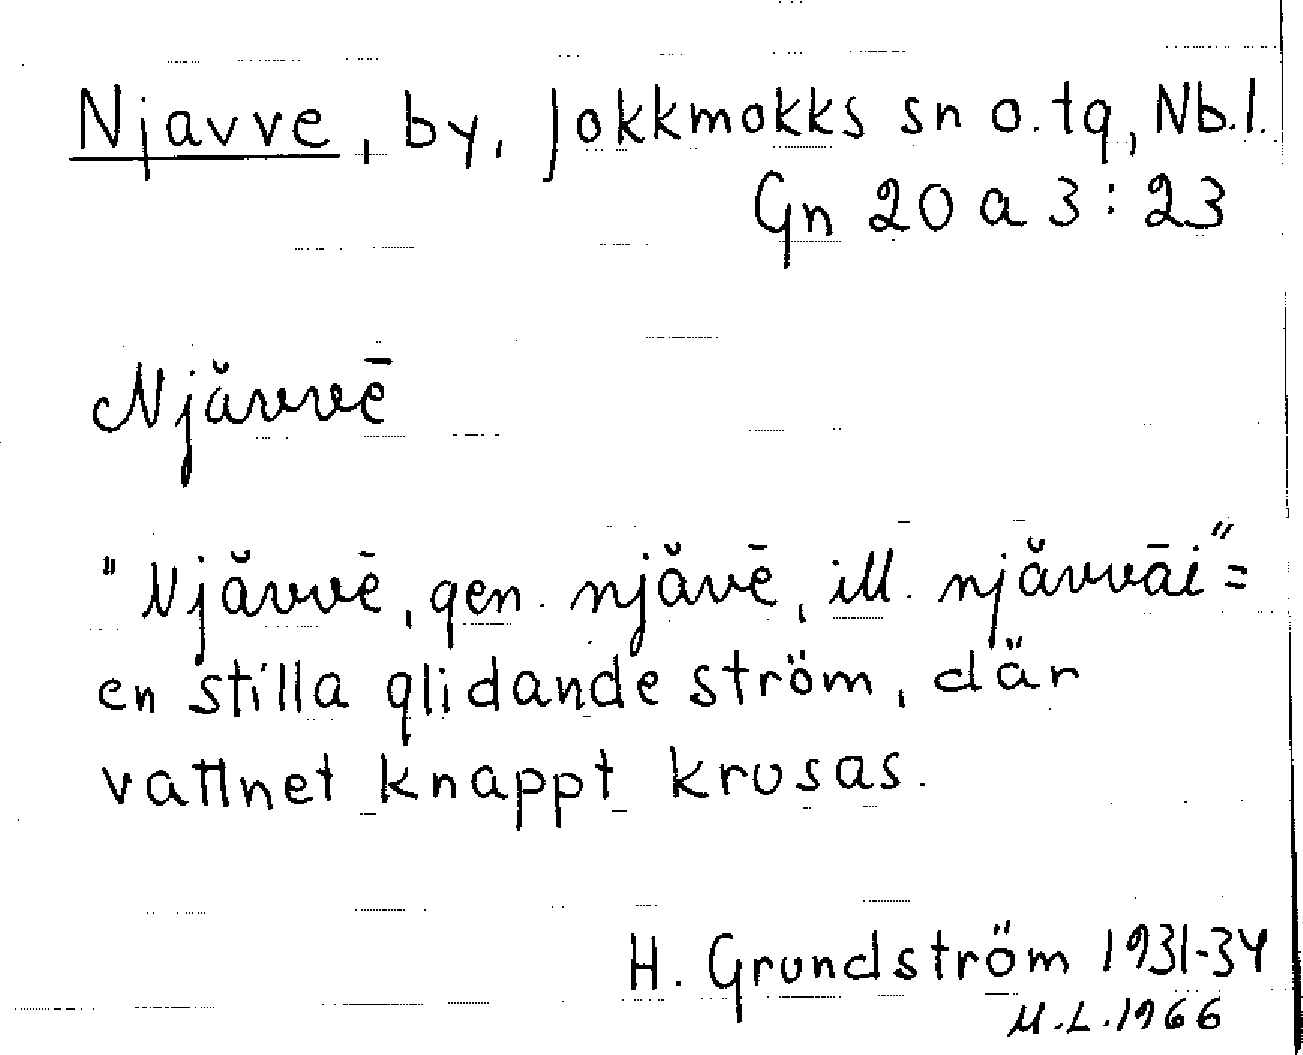 Njavve, by, Jokkmokks sn o. tg, Nb. l.
Gn 20 a 3:23
Njăvvē
"Njăvvē, gen. njăvē, ill. njăvvāi" =
en stilla glidande ström, där
vattnet knappt krusas.
H. Grundström 1931-34
M.L. 1966